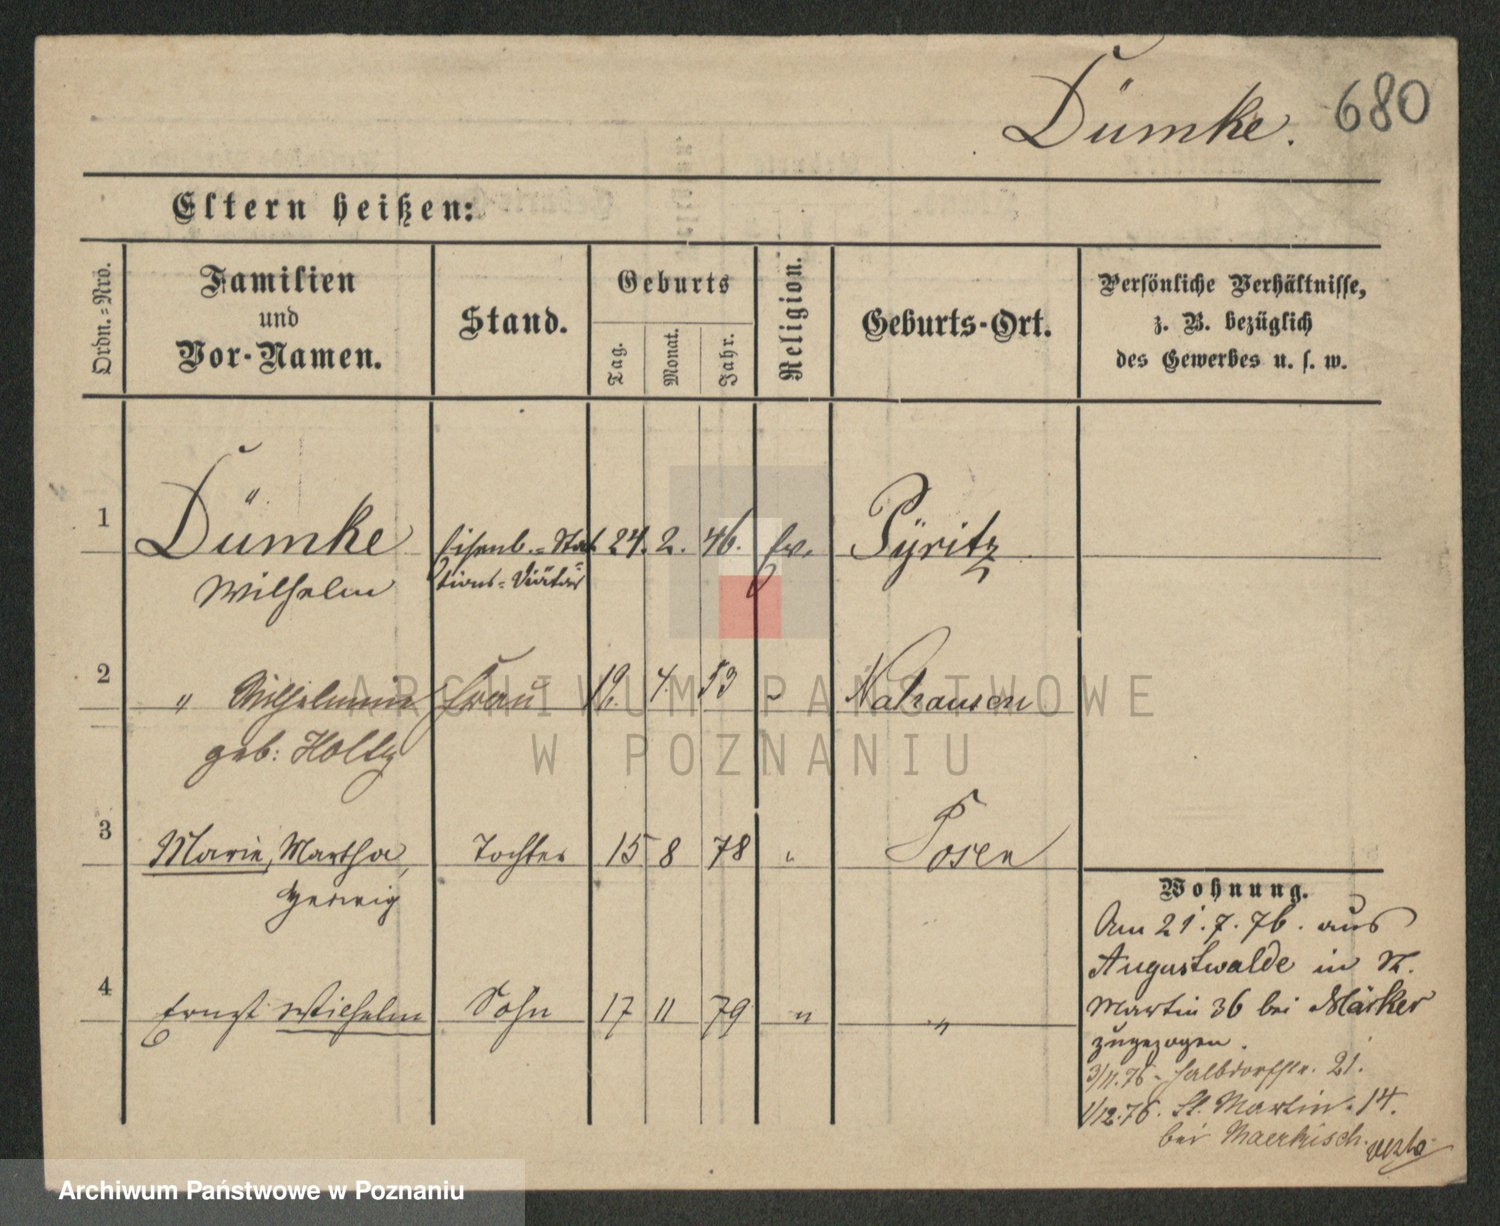 Dümke. 680
Eltern heißen:
Ordn.=Nro.
Familien
und
Vor-Namen.
Stand.
Geburts
Tag.
Monat.
Jahr.
Religion.
Geburts-Ort.
Persönliche Verhältnisse,
z. B. bezüglich
des Gewerbes u. s. w.
1 Dümke Eisenb.=Sta 24. 2. 46. ev. Pÿritz
Wilhelm tions=Diätar
2 " Wilhelmine Frau 19. 4. 53 " Nahausen
geb: Holtz
3 Marie, Martha, Tochter 15 8 78 " Posen
Hedwig
4 Ernst Wilhelm Sohn 17 11 79 " "
Wohnung.
Am 21.7.76. aus
Augustwalde in St.
Martin 36 bei Märker
zugezogen.
3/11.76 - Halbdorfstr. 21.
1/12.76. St. Martin. 14.
bei Maerkisch.
ARCHIWUM PAŃSTWOWE
W POZNANIU
Archiwum Państwowe w Poznaniu